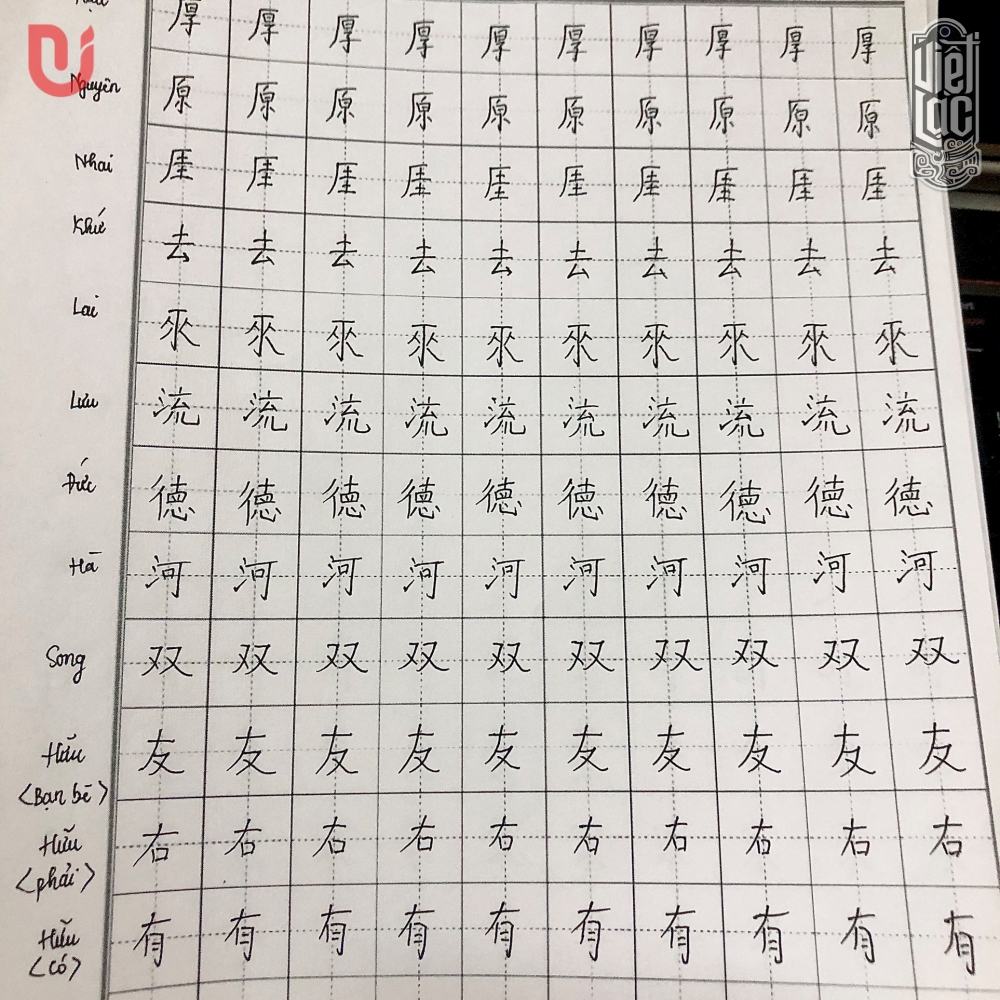 厚 厚 厚 厚 厚 厚 厚 厚 厚 厚
Nguyên 原 原 原 原 原 原 原 原 原 原
Nhai 厓 厓 厓 厓 厓 厓 厓 厓 厓 厓
Khứ 去 去 去 去 去 去 去 去 去 去
Lai 來 來 來 來 來 來 來 來 來 來
Lưu 流 流 流 流 流 流 流 流 流 流
Đức 德 德 德 德 德 德 德 德 德 德
Hà 河 河 河 河 河 河 河 河 河 河
Song 双 双 双 双 双 双 双 双 双 双
Hữu 友 友 友 友 友 友 友 友 友 友
<Bạn bè>
Hữu 右 右 右 右 右 右 右 右 右 右
<phải>
Hữu 有 有 有 有 有 有 有 有 有 有
<có>
Việt
Lạc